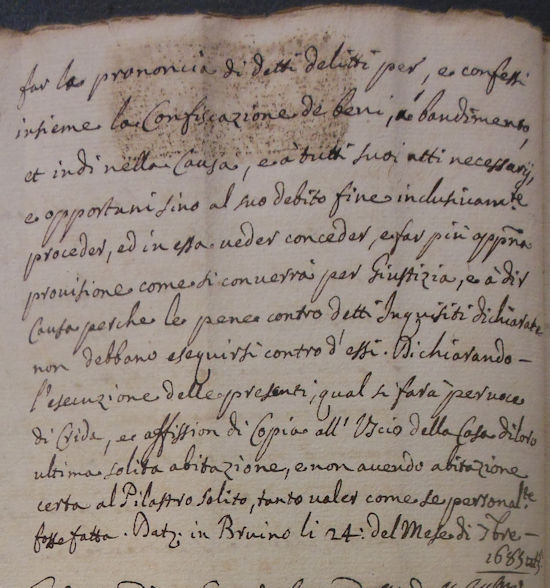 far la prononcia di detti delitti per, e confessi
insieme la Confiscazione de beni, à bandimento,
et indi nella Causa, e à tutti suoi atti necessarÿ,
e opportuni sino al suo debito fine inclusivamte
proceder, ed in essa veder conceder, e far più oppna
provisione come si converrà per Giustizia, e à dir
Causa perche le pene contro detti Inquisiti dichiarate
non debbano eseguirsi contro d'essi. Dichiarando-
l'esecuzione delle presenti, qual si farà per voce
di Crida, e affission di Copia all' Uscio della Casa di loro
ultima solita abitazione, e non avendo abitazione
certa al Pilastro solito, tanto valer come se personalte
fosse fatta. Datz: in Bruino li 24: del Mese di 7bre-
1685